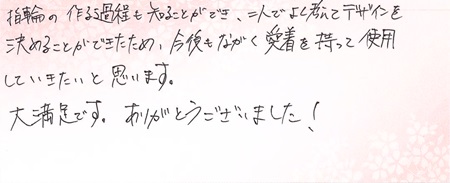 指輪の作る過程も知ることができ、二人でよく考えてデザインを
決めることができたため、今後もながく愛着を持って使用
していきたいと思います。
大満足です。ありがとうございました!